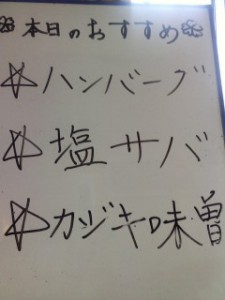 本日のおすすめ
☆ハンバーグ
☆塩サバ
☆カジキ味曽